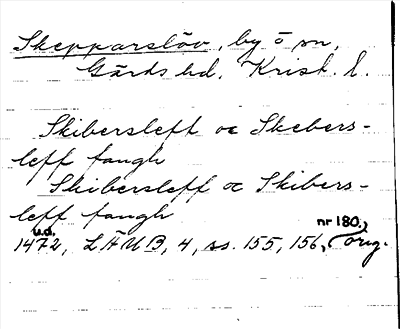 Skepparslöv, by o sn,
Gärds hd, Krist. l.
Skibersleff oc Skebers-
leff fangh
Skibersleff oc Skibers-
leff fangh
u.d. nr 180.,
1472, LÄUB, 4, ss. 155, 156, orig.